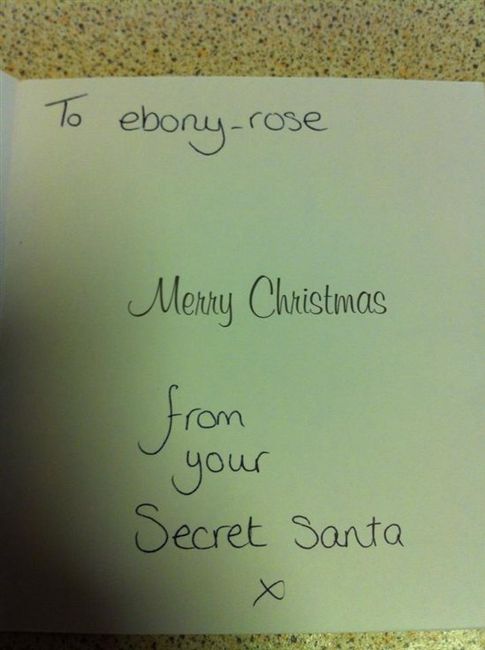 To ebony-rose
Merry Christmas
from
your
Secret Santa
x